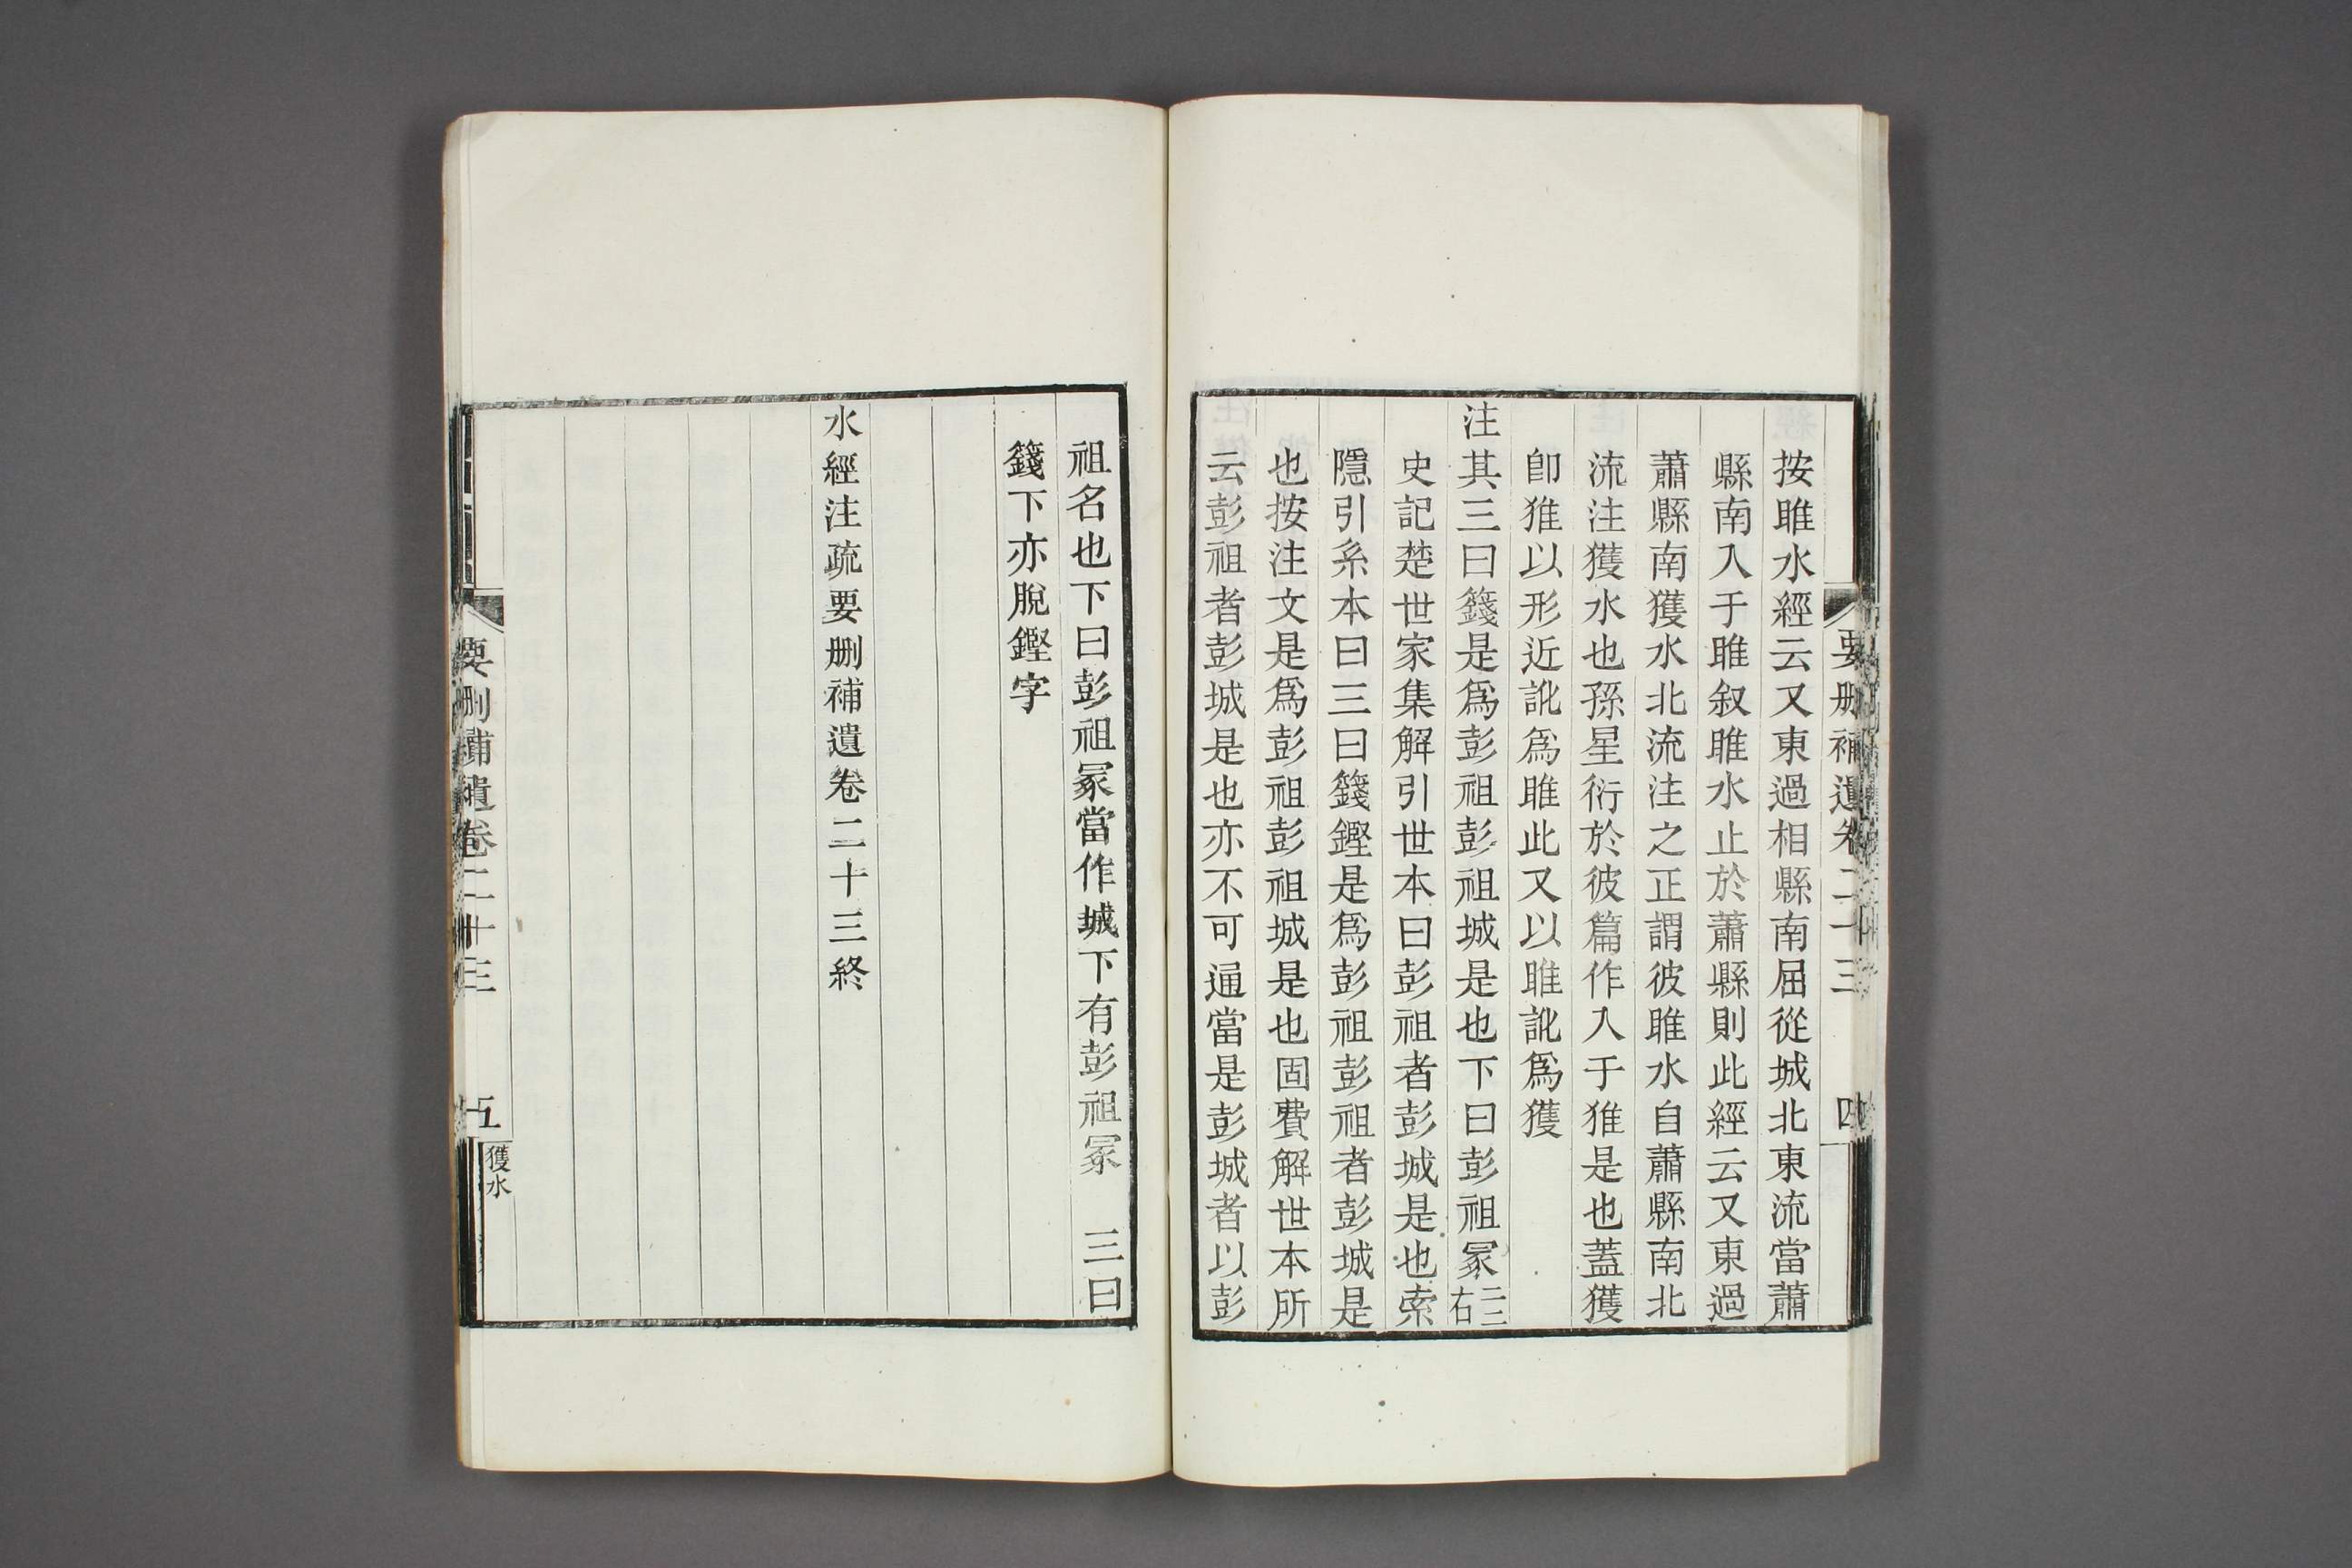 要刪補遺卷二十三 四
按睢水經云又東過相縣南屈從城北東流當蕭
縣南入于睢叙睢水止於蕭縣則此經云又東過
蕭縣南獲水北流注之正謂彼睢水自蕭縣南北
流注獲水也孫星衍於彼篇作入于獲是也蓋獲
卽獲以形近訛爲睢此又以睢訛爲獲
注其三曰籛是爲彭祖彭祖城是也下曰彭祖冢二二右
史記楚世家集解引世本曰彭祖者彭城是也索
隱引系本曰三曰籛鏗是爲彭祖彭祖者彭城是
也按注文是爲彭祖彭祖城是也固費解世本所
云彭祖者彭城是也亦不可通當是彭城者以彭
祖名也下曰彭祖冢當作城下有彭祖冢 三曰
籛下亦脫鏗字
水經注疏要刪補遺卷二十三終
要刪補遺卷二十三 五 獲水